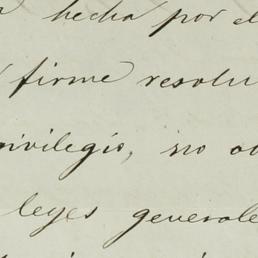 hecha por el
firme resolu
rivilegio, no o
leyes generale